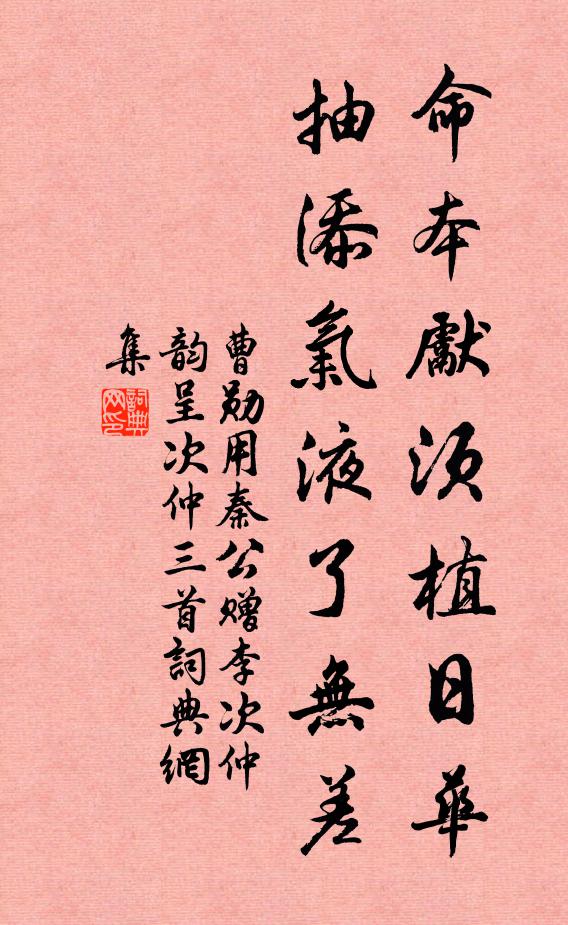 命本獻須植日華
抽添氣液了無差
曹勛用秦公贈李次仲
韵呈次仲三首詞典網
集
詞典
网印